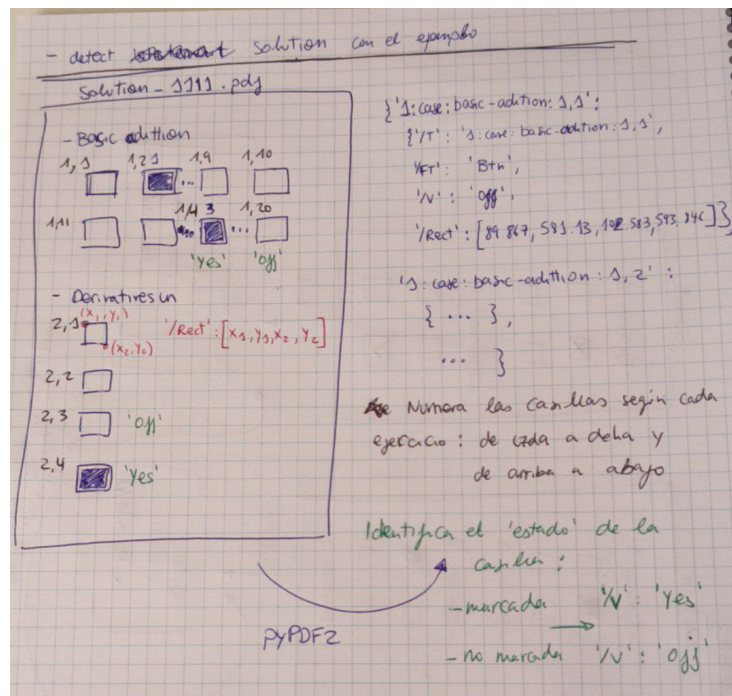 - detect solution con el ejemplo
Solution - 1111.pdf
- Basic adittion
1,1 1,2 1 1,9 1,10
...
1,11 1,4 3 1,20
... ...
'Yes' 'Off'
- Derivatives un
(x1, y1)
2,1 '/Rect': [x1, y1, x2, y2]
(x2, y2)
2,2
2,3 'Off'
2,4 'Yes'
PYPDF2
{'1:case:basic-adition:1,1':
{'/T': '1:case:basic-adition:1,1',
'/FT': 'Btn',
'/V': 'Off',
'/Rect': [89.867, 581.13, 102.583, 593.846]},
'1:case:basic-adittion:1,2':
{ ... },
... }
Numera las casillas según cada
ejercicio: de izda a dcha y
de arriba a abajo
Identifica el 'estado' de la
casilla:
- marcada '/V': 'Yes'
- no marcada '/V': 'Off'